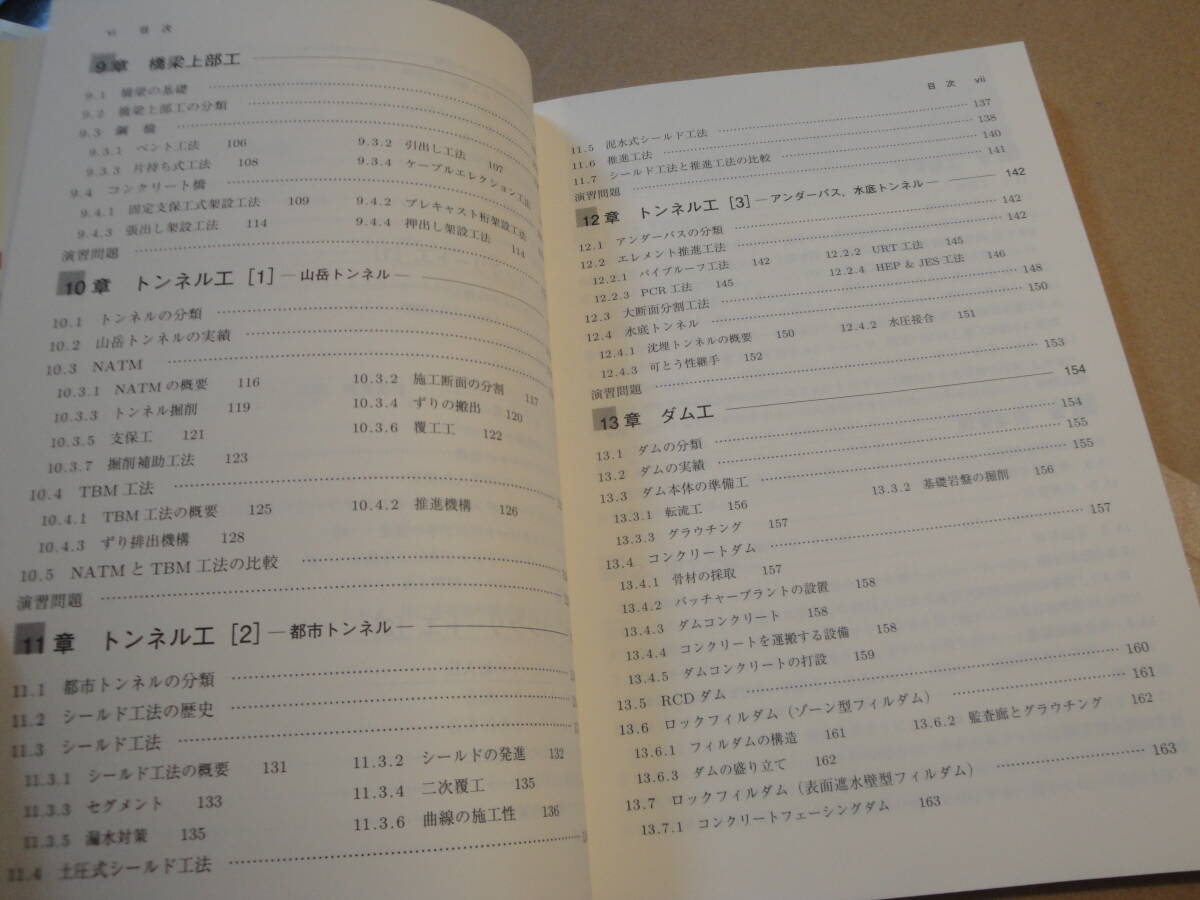 vi 目次
9章 橋梁上部工
9.1 橋梁の基礎
9.2 橋梁上部工の分類
9.3 鋼橋
9.3.1 ベント工法 106 9.3.2 引出し工法 107
9.3.3 片持ち式工法 108 9.3.4 ケーブルエレクション工法
9.4 コンクリート橋
9.4.1 固定支保工式架設工法 109 9.4.2 プレキャスト桁架設工法
9.4.3 張出し架設工法 114 9.4.4 押出し架設工法 114
演習問題
10章 トンネル工 [1] ―山岳トンネル―
10.1 トンネルの分類
10.2 山岳トンネルの実績
10.3 NATM
10.3.1 NATMの概要 116 10.3.2 施工断面の分割 117
10.3.3 トンネル掘削 119 10.3.4 ずりの搬出 120
10.3.5 支保工 121 10.3.6 覆工工 122
10.3.7 掘削補助工法 123
10.4 TBM工法
10.4.1 TBM工法の概要 125 10.4.2 推進機構 126
10.4.3 ずり排出機構 128
10.5 NATMとTBM工法の比較
演習問題
11章 トンネル工 [2] ―都市トンネル―
11.1 都市トンネルの分類
11.2 シールド工法の歴史
11.3 シールド工法
11.3.1 シールド工法の概要 131 11.3.2 シールドの発進 132
11.3.3 セグメント 133 11.3.4 二次覆工 135
11.3.5 漏水対策 135 11.3.6 曲線の施工性 136
11.4 土圧式シールド工法
目次 vii
11.5 泥水式シールド工法 137
11.6 推進工法 138
11.7 シールド工法と推進工法の比較 140
演習問題 141
12章 トンネル工 [3] ―アンダーパス，水底トンネル― 142
12.1 アンダーパスの分類 142
12.2 エレメント推進工法 142
12.2.1 パイプルーフ工法 142 12.2.2 URT工法 145
12.2.3 PCR工法 145 12.2.4 HEP & JES工法 146
12.3 大断面分割工法 148
12.4 水底トンネル 150
12.4.1 沈埋トンネルの概要 150 12.4.2 水圧接合 151
12.4.3 可とう性継手 152
演習問題 153
13章 ダム工 154
13.1 ダムの分類 154
13.2 ダムの実績 155
13.3 ダム本体の準備工 155
13.3.1 転流工 156 13.3.2 基礎岩盤の掘削 156
13.3.3 グラウチング 157
13.4 コンクリートダム 157
13.4.1 骨材の採取 157
13.4.2 バッチャープラントの設置 158
13.4.3 ダムコンクリート 158
13.4.4 コンクリートを運搬する設備 158
13.4.5 ダムコンクリートの打設 159
13.5 RCDダム 160
13.6 ロックフィルダム（ゾーン型フィルダム） 161
13.6.1 フィルダムの構造 161 13.6.2 監査廊とグラウチング 162
13.6.3 ダムの盛り立て 162
13.7 ロックフィルダム（表面遮水壁型フィルダム） 163
13.7.1 コンクリートフェーシングダム 163